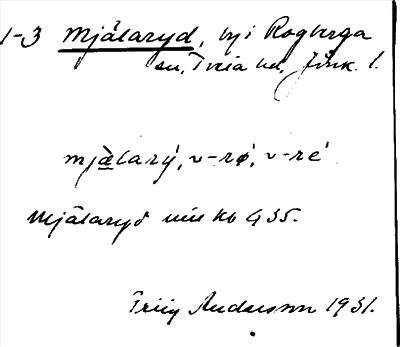 1-3 Mjälaryd, by i Rogberga
sn, Tveta hd, Jönk. l.
mjälarý, v-rǿ, v-ré
Mjälaryd
Andersson 1931.